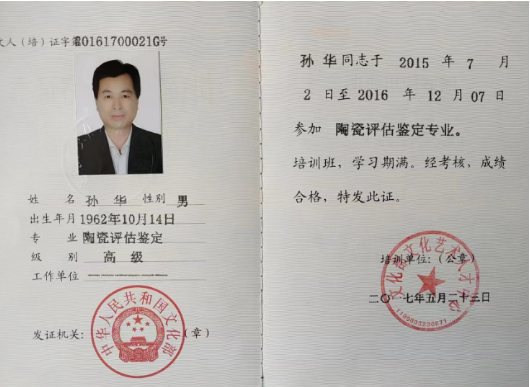 文人（培）证字第0161700021G号
姓 名 孙 华 性别 男
出生年月 1962年10月14日
专 业 陶瓷评估鉴定
级 别 高 级
工作单位
发证机关： （章）
中华人民共和国文化部
孙 华 同志于 2015 年 7 月
2 日至 2016 年 12 月 07 日
参加 陶瓷评估鉴定专业。
培训班，学习期满。经考核，成绩
合格，特发此证。
培训单位：（公章）
文化部文化艺术人才中心
二〇一七年五月二十三日